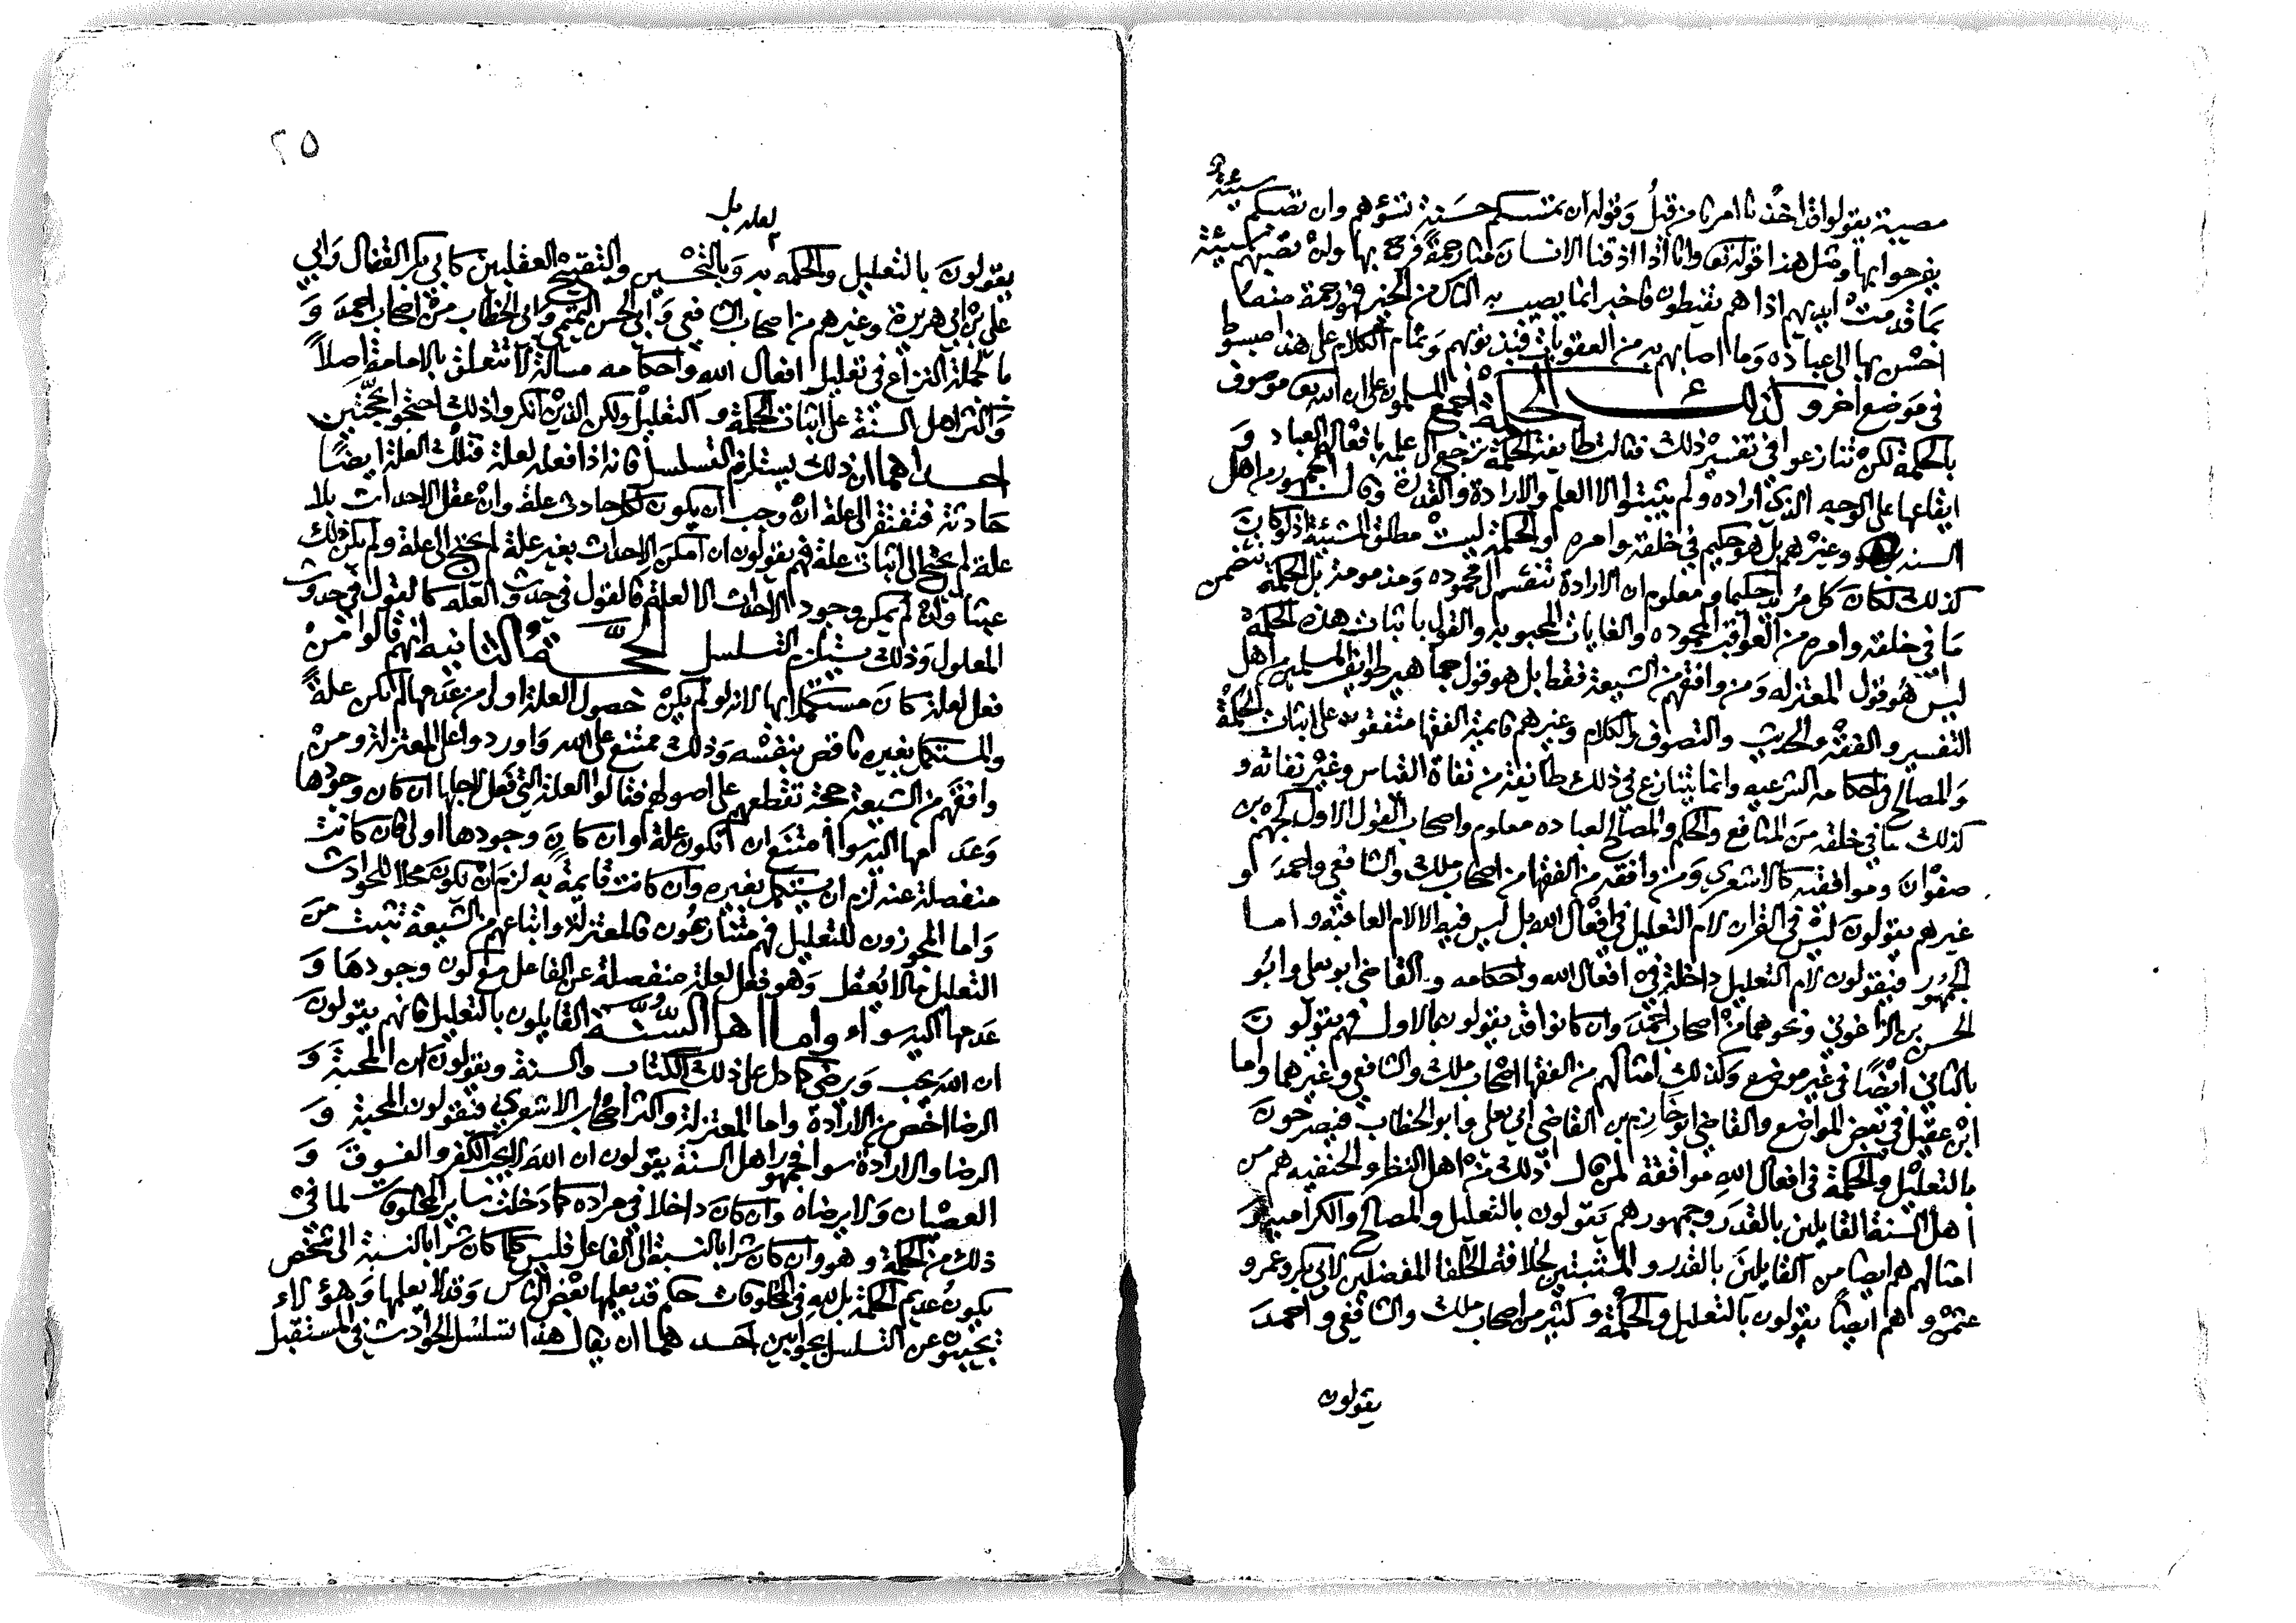 مصيبة يقولوا قد اخذنا امرنا من قبل وقوله ان تمسسكم حسنة تسؤهم وان تصبكم سيئة
يفرحوا بها ومثل هذا قوله تعا وانا اذا اذقنا الانسان منا رحمة فرح بها وان تصبهم سيئة
بما قدمت ايديهم اذا هم يقنطون فاخبر انما يصيب به الناس من الخير فهو رحمة منه
احسن بها الى عباده وما اصابهم به من العقوبات فبذنوبهم وتمام الكلام على هذا مبسوط
في موضع اخر وكذلك الحكمة اجمع المسلمون على ان الله تعا موصوف
بالحكمة لكن تنازعوا في تفسير ذلك فقالت طايفة الحكمة ترجع الى علمه بافعال العباد و
ايقاعها على الوجه الذي اراده ولم يثبتوا الا العلم والارادة والقدرة وقال الجمهور من اهل
السنه وغيرهم بل هو حكيم في خلقه وامره والحكمة ليست مطلق المشيئة اذ لو كان
كذلك لكان كل مريد حكيما ومعلوم ان الارادة تنقسم الى محموده ومذمومة بل الحكمة تتضمن
ما في خلقه وامره من العواقب المحموده والغايات المحبوبه والقول باثبات هذه الحكمة
ليس هو قول المعتزله ومن وافقهم من الشيعة فقط بل هو قول جماهير طوايف المسلمين من اهل
التفسير والفقه والحديث والتصوف والكلام وغيرهم فايمة الفقها متفقون على اثبات الحكمة
والمصالح في احكامه الشرعيه وانما ينازع في ذلك طايفة من نفاة القياس وغير نفاته و
كذلك ما في خلقه من المنافع والحكم والمصالح لعباده معلوم واصحاب القول الاول كجهم بن
صفوان وموافقيه كالاشعري ومن وافقه من الفقها من اصحاب ملك والشافعي واحمد او
غيرهم يقولون ليس في القران لام التعليل في افعال الله بل ليس فيه الا لام العاقبة واما
الجمهور فيقولون لام التعليل داخلة في افعال الله واحكامه والقاضي ابو يعلى وابو
الحسن بن الزاغوني ونحوهما من اصحاب احمد وان كانوا قد يقولون بالاول فهم يقولون
بالثاني ايضا في غير موضع وكذلك امثالهم من الفقها اصحاب ملك والشافعي وغيرهما واما
ابن عقيل في بعض المواضع والقاضي ابو خازم بن القاضي ابي يعلى وابو الخطاب فيصرحون
بالتعليل والحكمة في افعال الله موافقة لمن قال ذلك من اهل النظر والحنفيه هم من
اهل السنة القايلين بالقدر وجمهورهم يقولون بالتعليل والمصالح والكراميه و
امثالهم هم ايضا من القايلين بالقدر والمثبتين لخلافة الخلفا المفضلين لابي بكر وعمر و
عثمن وهم ايضا يقولون بالتعليل والحكمة وكثير من اصحاب ملك والشافعي واحمد
يقولون
٢٥
يقولون بالتعليل والحكمه به وبالتحسين والتقبيح العقليين كابي بكر القفال وابي
علي بن ابي هريرة وغيرهم من اصحاب الشافعي وابي الحسن التميمي وابي الخطاب من اصحاب احمد و
بالجملة النزاع في تعليل افعال الله واحكامه مسالة لا تتعلق بالامامة اصلا
واكثر اهل السنة على اثبات الحكمة والتعليل ولكن الذين انكروا ذلك احتجوا بحجتين
احداهما ان ذلك يستلزم التسلسل فانه اذا فعله لعلة فتلك العلة ايضا
حادثة فتفتقر الى علة ان وجب ان يكون لكل حادث علة وان عقل الاحداث بلا
علة لم يحتج الى اثبات علة فهم يقولون ان امكن الاحداث بغير علة لم يحتج الى علة ولم يكن ذلك
عبثا وان لم يمكن وجود الاحداث الا لعلة فالقول في حدوث العله كالقول في حدوث
المعلول وذلك يستلزم التسلسل الحجة الثانيه انهم قالوا من
فعل لعلة كان مستكملا بها لانه لو لم يكن حصول العلة اولى من عدمها لم تكن علة
والمستكمل بغيره ناقص بنفسه وذلك ممتنع على الله واوردوا على المعتزلة ومن
وافقهم من الشيعة حجة تقطعهم على اصولهم فقالوا العلة التي فعل لاجلها ان كان وجودها
وعدمها اليه سوا امتنع ان تكون علة وان كان وجودها اولى فان كانت
منفصلة عنه لزم ان يستكمل بغيره وان كانت قايمة به لزم ان يكون محلا للحوادث
واما المجوزون للتعليل فهم متنازعون فالمعتزلة واتباعهم من الشيعة تثبت من
التعليل مالا يعقل وهو فعل لعلة منفصلة عن الفاعل مع كون وجودها و
عدمها اليه سواء واما اهل السنة القايلون بالتعليل فانهم يقولون
ان الله يحب ويرضى كما دل على ذلك الكتاب والسنة ويقولون ان المحبة و
الرضا اخص من الارادة واما المعتزلة واكثر اصحاب الاشعري فيقولون المحبة و
الرضا والارادة سوا فجمهور اهل السنة يقولون ان الله لا يحب الكفر والفسوق و
العصيان ولا يرضاه وان كان داخلا في مراده كما دخلت ساير المخلوقات لما في
ذلك من الحكمة وهو وان كان شرا بالنسبة الى الفاعل فليس كلما كان شرا بالنسبة الى شخص
يكون عديم الحكمة بل لله في المخلوقات حكم قد يعلمها بعض الناس وقد لا يعلمها وهؤلاء
يجيبون عن التسلسل بجوابين احدهما ان يقال هذا تسلسل الحوادث في المستقبل